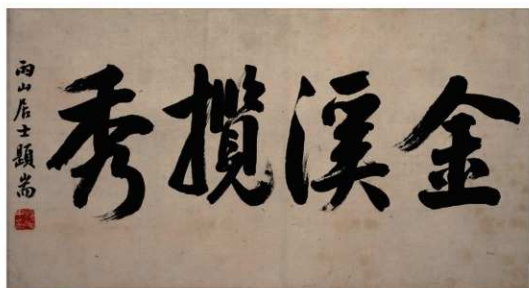 金溪攬秀
雨山居士顯